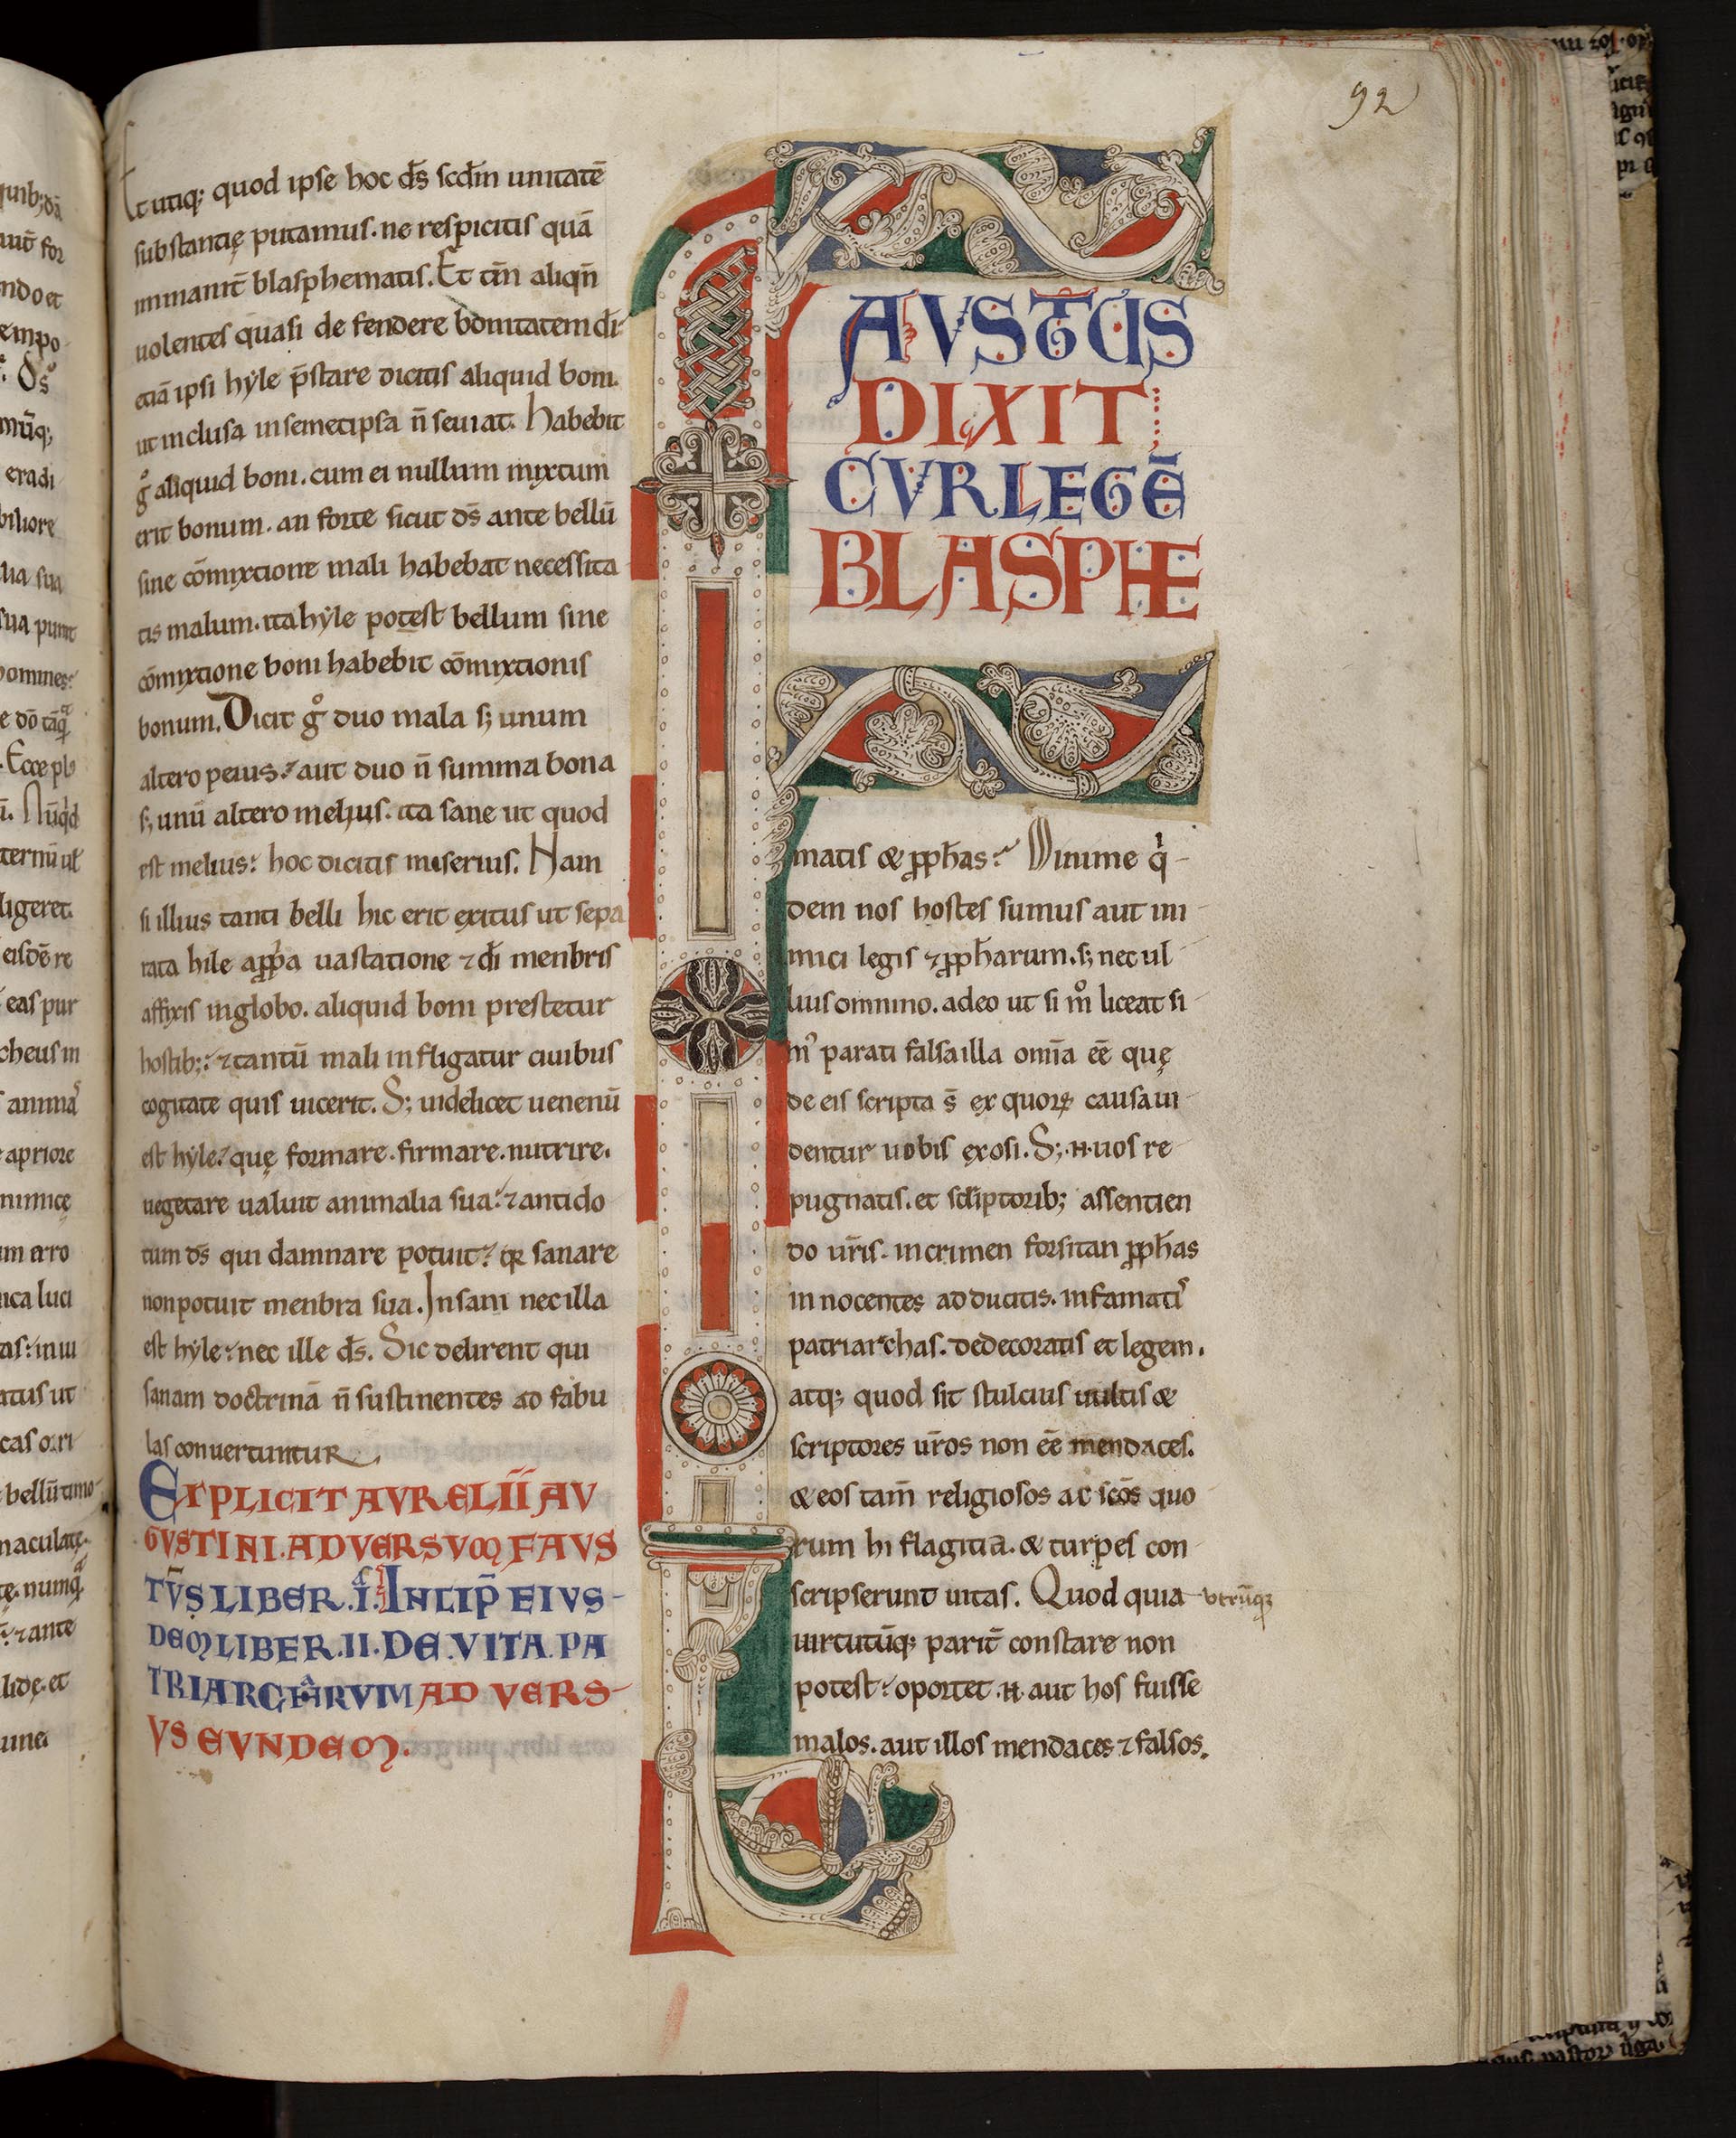 92
Et utiq; quod ipse hoc d̄s scdm̄ unitatē
substantię putamus. ne respicitis quā
immanit̄ blasphematis. Et tm̄ aliqn̄
uolentes quasi de fendere bonitatem dī
etiā ipsi hẏle p̄stare dicitis aliquid boni.
ut inclusa insemetipsa n̄ seuiat. Habebit
gͦ aliquid boni. cum ei nullum mixtum
erit bonum. an forte sicut ds̄ ante bellū
sine cōmixtione mali habebat necessita
tis malum. ita hẏle potest bellum sine
cōmixtione boni habebit cōmixtionis
bonum. Dicit gͦ duo mala s; unum
altero peius? aut duo n̄ summa bona
s; unū altero melius. ita sane ut quod
est melius: hoc dicitis miserius. Nam
si illius tanti belli hic erit exitus ut sepa
rata hile appͥa uastatione ⁊ dī menbris
affixis inglobo. aliquid boni prestetur
hostib;: ⁊ tantū mali in fligatur ciuibus
cogitate quis uicerit. S; uidelicet uenenū
est hẏle? quę formare. firmare. nutrire.
uegetare ualuit animalia sua: ⁊ antido
tum ds̄ qui damnare potuit? ⁊ sanare
non potuit menbra sua. Insani nec illa
est hẏle: nec ille ds̄. Sic delirent qui
sanam doctrinā n̄ sustinentes ad fabu
las conuertuntur.
EXPLICIT AVRELII AV
GVSTINI. ADVERSVM FAVS
TVS LIBER .I. INCIP̄ EIVS-
DEM LIBER .II. DE .VITA. PA
TRIARCHARVM AD VERS-
VS EVNDEM.
FAVSTUS
DIXIT
CVR LEGĒ
BLASPHE
matis & pph̄as? Minime qͥ-
dem nos hostes sumus aut ini
mici legis ⁊ pph̄arum. s; nec ul
lius omnino. adeo ut si mͦ liceat si
m̉ parati falsa illa om̄a eē quę
de eis scripta s̄ ex quoꝝ causa ui-
dentur uobis exosi. S; .N. uos re-
pugnatis. et sc̄iptorib; assentien
do ur̄is. incrimen forsitan pph̄as
in nocentes ad ducitis. infamati᷒
patriarchas. dedecoratis et legem.
atq; quod sit stulcius uultis &
scriptores ur̄os non eē mendaces.
& eos tam̄ religiosos ac scōs quo
rum hi flagitia. & turpes con
scripserunt uitas. Quod quia utrūq;
uirtutūq; parit̄ constare non
potest: oportet .N. aut hos fuisse
malos. aut illos mendaces ⁊ falsos.